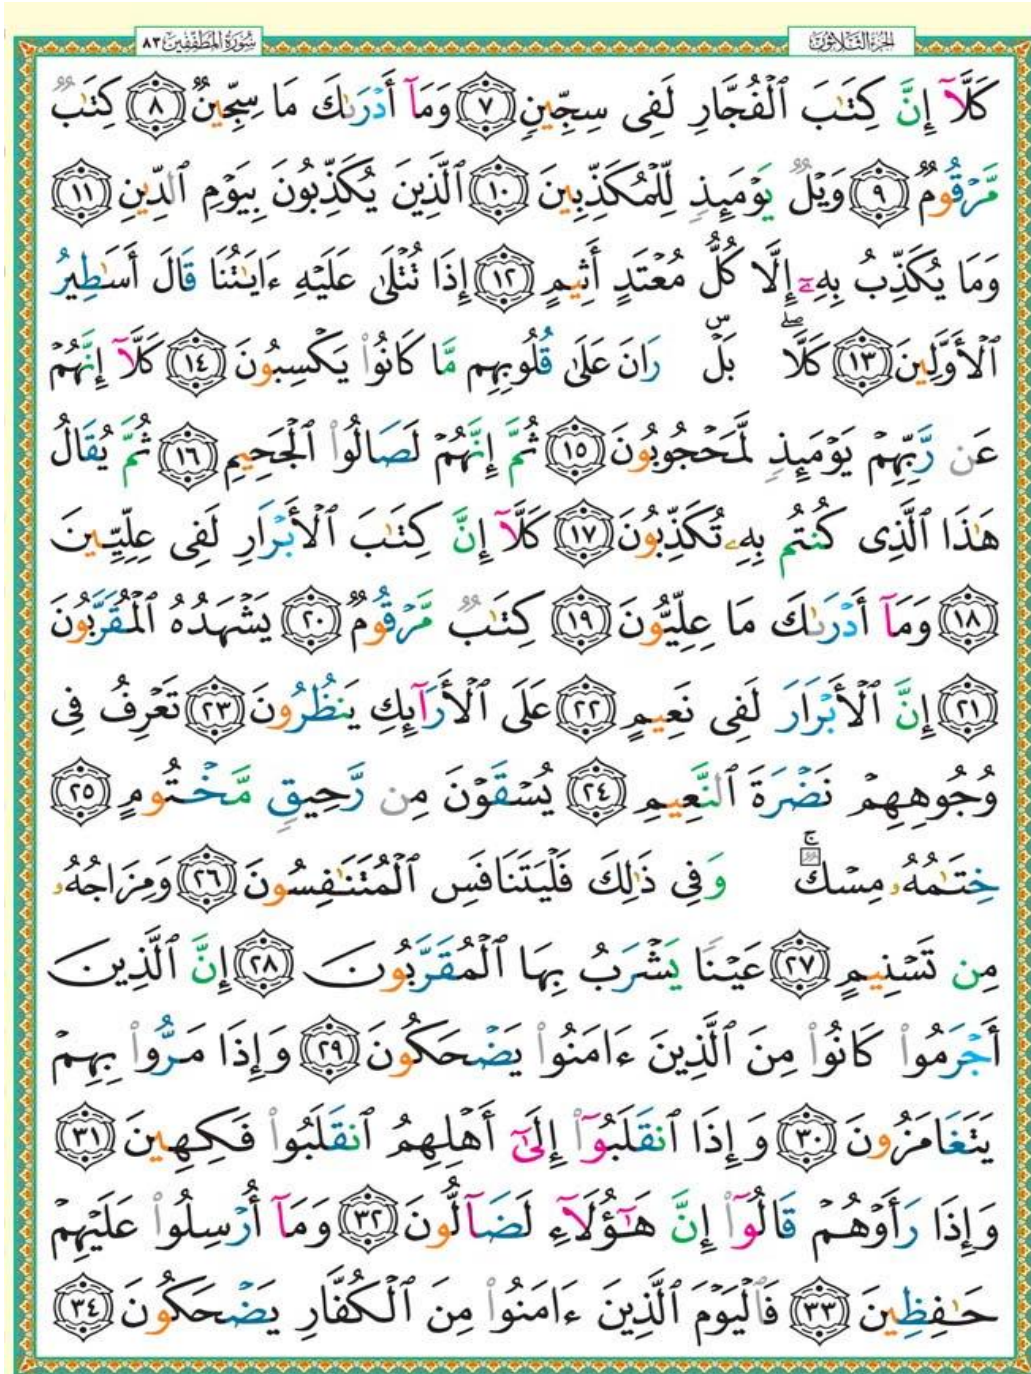 الجزء الثلاثون
سورة المطففين ٨٣
كَلَّآ إِنَّ كِتَٰبَ ٱلْفُجَّارِ لَفِى سِجِّينٍ ٧ وَمَآ أَدْرَىٰكَ مَا سِجِّينٌ ٨ كِتَٰبٌ
مَّرْقُومٌ ٩ وَيْلٌ يَوْمَئِذٍ لِّلْمُكَذِّبِينَ ١٠ ٱلَّذِينَ يُكَذِّبُونَ بِيَوْمِ ٱلدِّينِ ١١
وَمَا يُكَذِّبُ بِهِۦٓ إِلَّا كُلُّ مُعْتَدٍ أَثِيمٍ ١٢ إِذَا تُتْلَىٰ عَلَيْهِ ءَايَٰتُنَا قَالَ أَسَٰطِيرُ
ٱلْأَوَّلِينَ ١٣ كَلَّاۖ بَلْۜ رَانَ عَلَىٰ قُلُوبِهِم مَّا كَانُوا۟ يَكْسِبُونَ ١٤ كَلَّآ إِنَّهُمْ
عَن رَّبِّهِمْ يَوْمَئِذٍ لَّمَحْجُوبُونَ ١٥ ثُمَّ إِنَّهُمْ لَصَالُوا۟ ٱلْجَحِيمِ ١٦ ثُمَّ يُقَالُ
هَٰذَا ٱلَّذِى كُنتُم بِهِۦ تُكَذِّبُونَ ١٧ كَلَّآ إِنَّ كِتَٰبَ ٱلْأَبْرَارِ لَفِى عِلِّيِّينَ
١٨ وَمَآ أَدْرَىٰكَ مَا عِلِّيُّونَ ١٩ كِتَٰبٌ مَّرْقُومٌ ٢٠ يَشْهَدُهُ ٱلْمُقَرَّبُونَ
٢١ إِنَّ ٱلْأَبْرَارَ لَفِى نَعِيمٍ ٢٢ عَلَى ٱلْأَرَآئِكِ يَنظُرُونَ ٢٣ تَعْرِفُ فِى
وُجُوهِهِمْ نَضْرَةَ ٱلنَّعِيمِ ٢٤ يُسْقَوْنَ مِن رَّحِيقٍ مَّخْتُومٍ ٢٥
خِتَٰمُهُۥ مِسْكٌۚ وَفِى ذَٰلِكَ فَلْيَتَنَافَسِ ٱلْمُتَنَٰفِسُونَ ٢٦ وَمِزَاجُهُۥ
مِن تَسْنِيمٍ ٢٧ عَيْنًا يَشْرَبُ بِهَا ٱلْمُقَرَّبُونَ ٢٨ إِنَّ ٱلَّذِينَ
أَجْرَمُوا۟ كَانُوا۟ مِنَ ٱلَّذِينَ ءَامَنُوا۟ يَضْحَكُونَ ٢٩ وَإِذَا مَرُّوا۟ بِهِمْ
يَتَغَامَزُونَ ٣٠ وَإِذَا ٱنقَلَبُوٓا۟ إِلَىٰٓ أَهْلِهِمُ ٱنقَلَبُوا۟ فَكِهِينَ ٣١
وَإِذَا رَأَوْهُمْ قَالُوٓا۟ إِنَّ هَٰٓؤُلَآءِ لَضَآلُّونَ ٣٢ وَمَآ أُرْسِلُوا۟ عَلَيْهِمْ
حَٰفِظِينَ ٣٣ فَٱلْيَوْمَ ٱلَّذِينَ ءَامَنُوا۟ مِنَ ٱلْكُفَّارِ يَضْحَكُونَ ٣٤